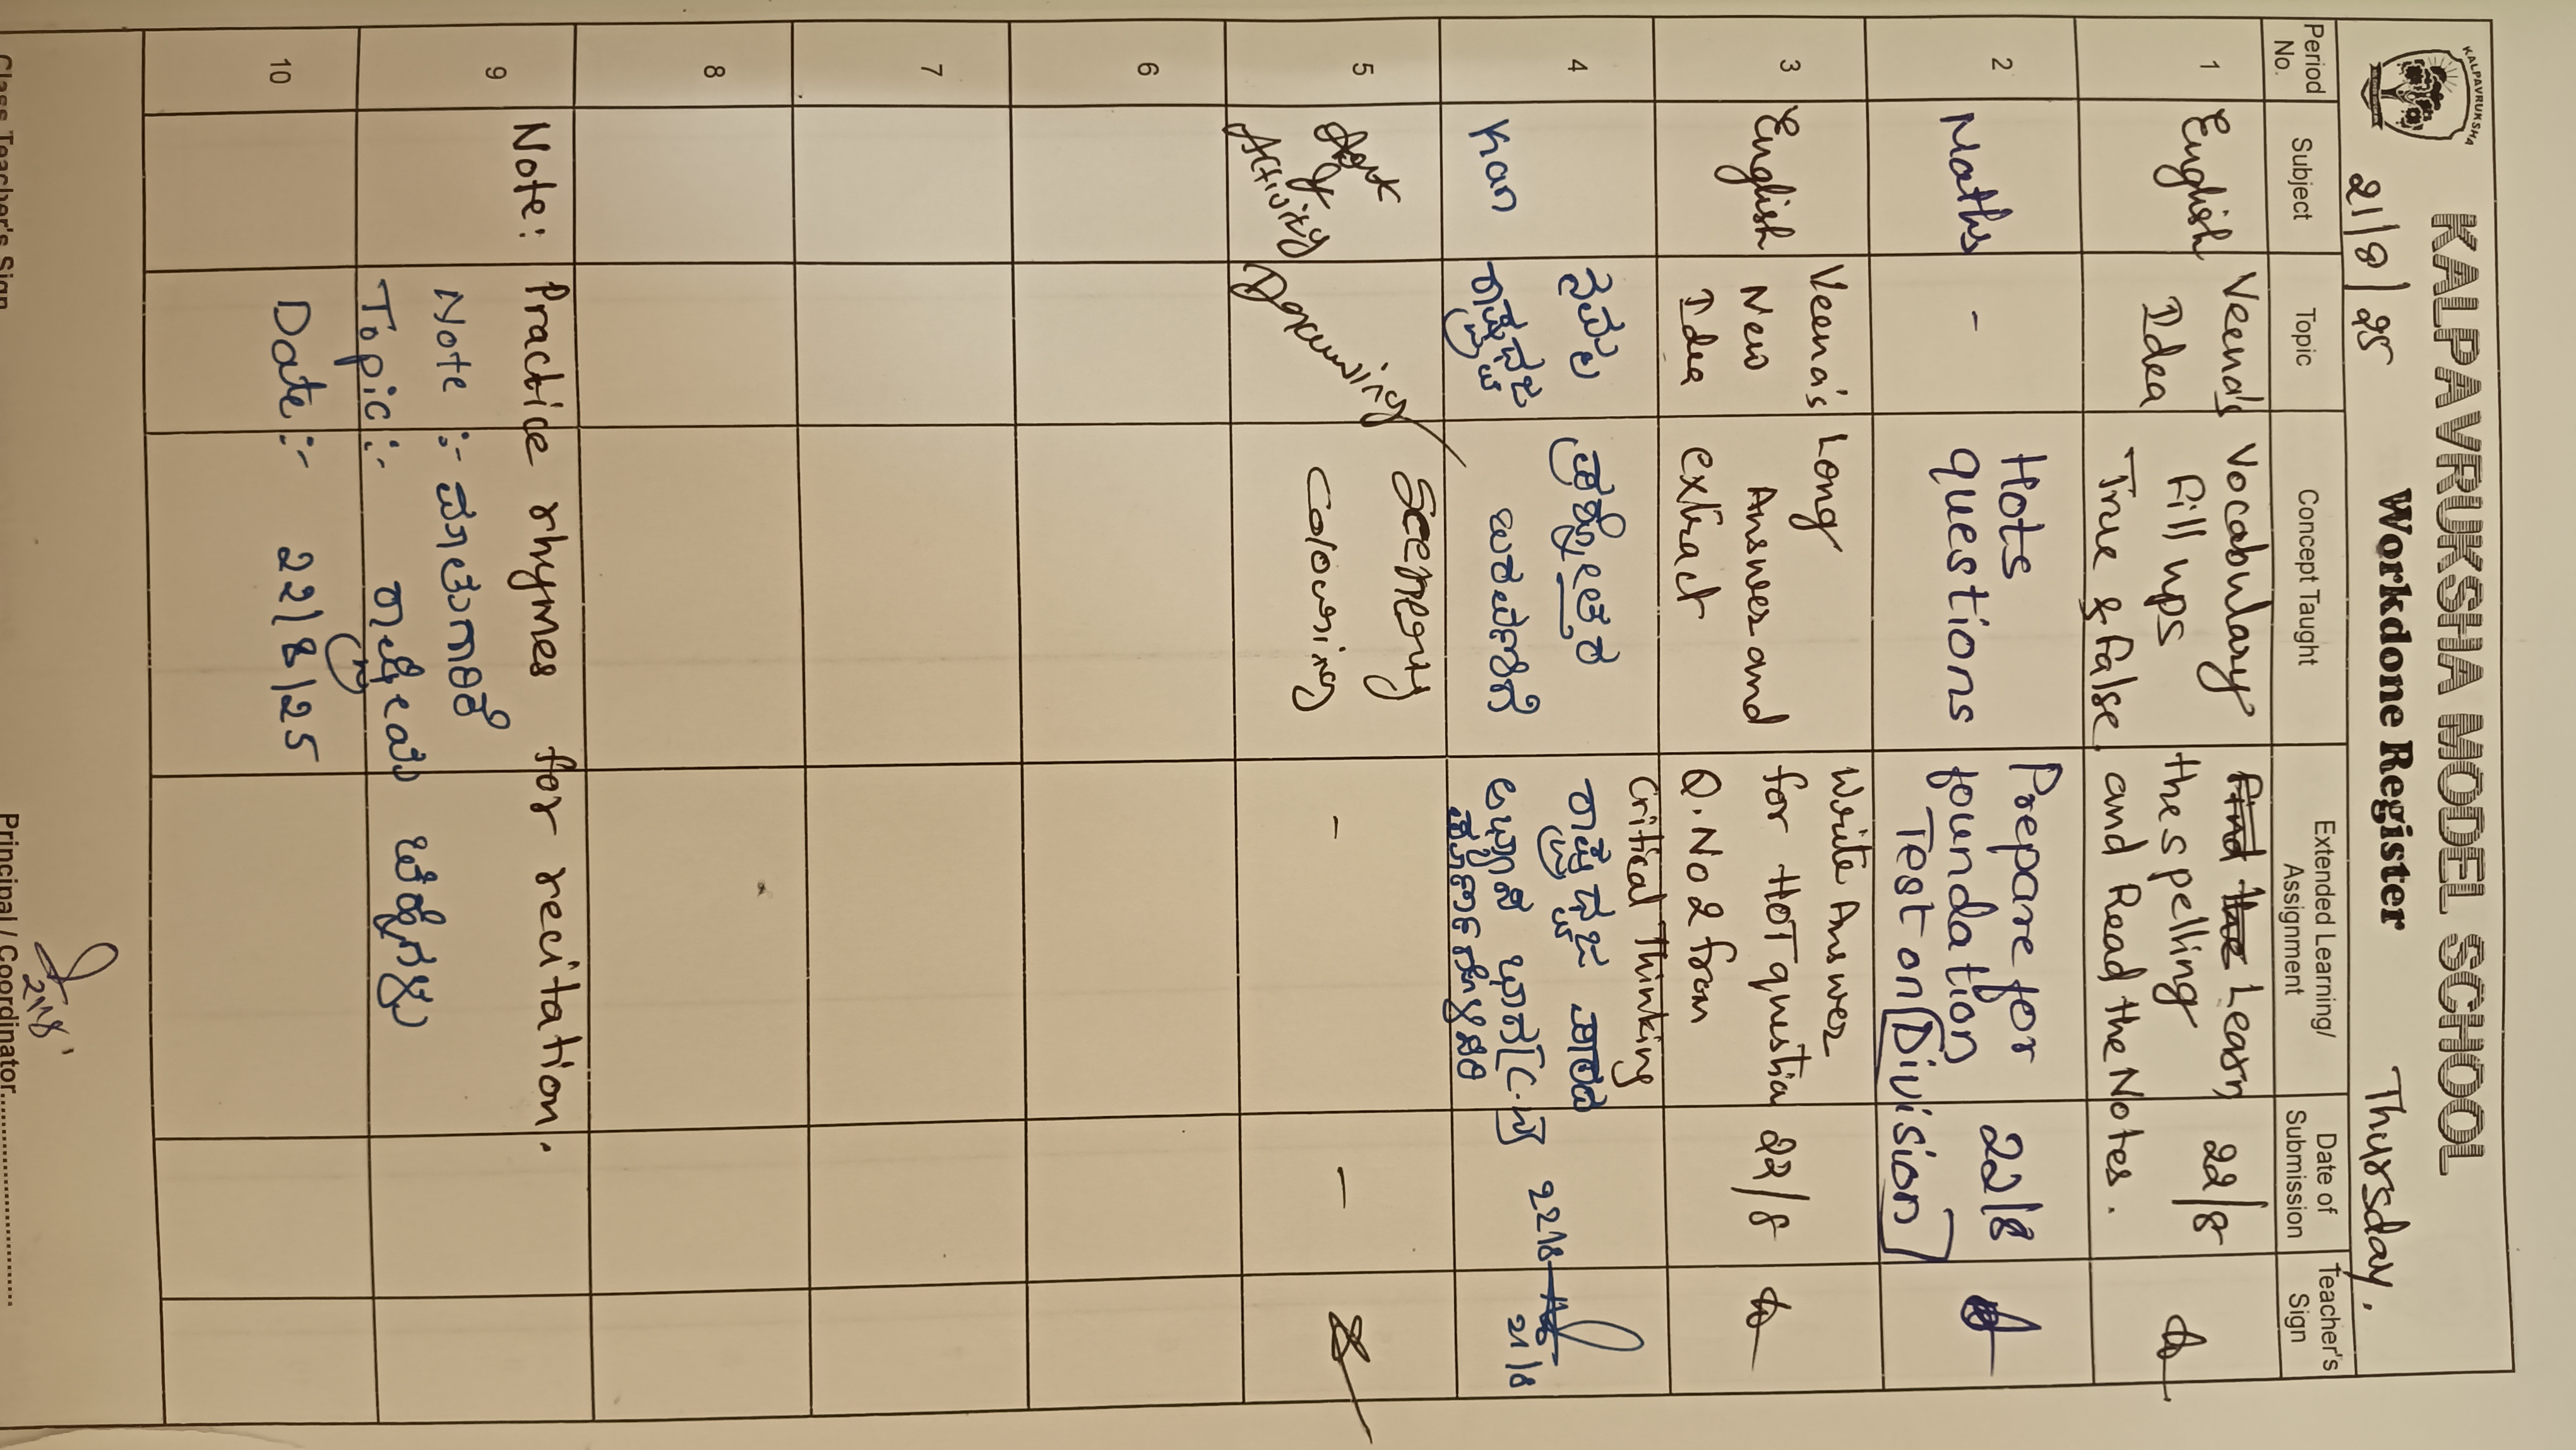 KALPAVRUKSHA
KALPAVRUKSHA MODEL SCHOOL
Workdone Register
21/8/25
Thursday.
Period No.
Subject
Topic
Concept Taught
Extended Learning/ Assignment
Date of Submission
Teacher's Sign
1
English
Veena's
Idea
Vocabulary
Fill ups
True & False
Find the Learn
the spelling
and Read the Notes.
22/8
2
Maths
-
Hots
questions
Prepare for
foundation
Test on Division
22/8
3
English
Veena's
New
Idea
Long
Answer and
extract
Write Answer
for HOT question
Q.No 2 from
Critical Thinking
22/8
4
Kan
ರಾಷ್ಟ್ರಧ್ವಜ
ಪ್ರಶ್ನೋತ್ತರ
ಬರವಣಿಗೆ
ರಾಷ್ಟ್ರಧ್ವಜ
22/8
21/8
5
Art
Activity
Drawing
Scenery
colouring
-
-
6
7
8
9
Note: Practice rhymes for recitation.
Note :- ಮಾತುಗಾರಿಕೆ
Topic :- ರಾಷ್ಟ್ರೀಯ ಚಿಹ್ನೆಗಳು
10
Date :- 22/8/25
21/8
Class Teacher's Sign
Principal / Coordinator